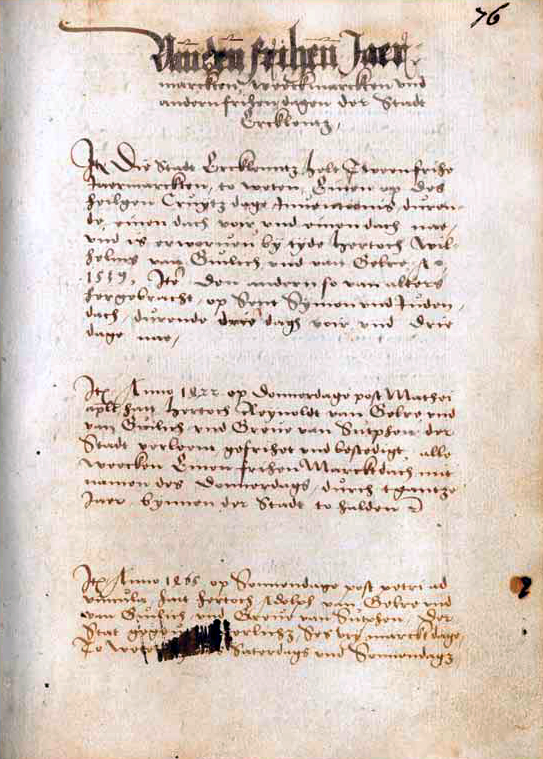 76
Van den frihen Jaer
marckten, weeckmarckten und
andern frihen dagen der Stadt
Ercklentz,
Itē Die Stadt Ercklentz holt Tween frihe
Jaermarckten, to weten, Einen op des
heilgen Cruytz dage Inventionis duren
de, einen dach voir, und einen dach nae,
und is erworuen by tyde Hertoch Wil
helms van Guilich, und van Gelre, Aº
1519, Itē Den anderen so van alters
hergebracht, op Sent Symon und Juden
dach, durende drie dagh voir, und drie
dage nae,
Itē Anno 1422 op Donnerdage post Mathei
apli hatt Hertoch Reynoldt van Gelre und
van Guilich und Greue van Sutphen, der
Stadt verlient gefrihet und bestedigt, alle
weecken Einen frihen Marcktdach, mit
namen des Donnerdags, durch tgantze
Jaer, bynnen der Stadt to halden
Itē Anno op Sonnendage post petri ad
vincula hatt Hertoch Adolph van Gelre und
van Guilich und Greue van Sutphen, Der
Stat Ses vry marckt dage
To weten Saterdags und Sonnendags